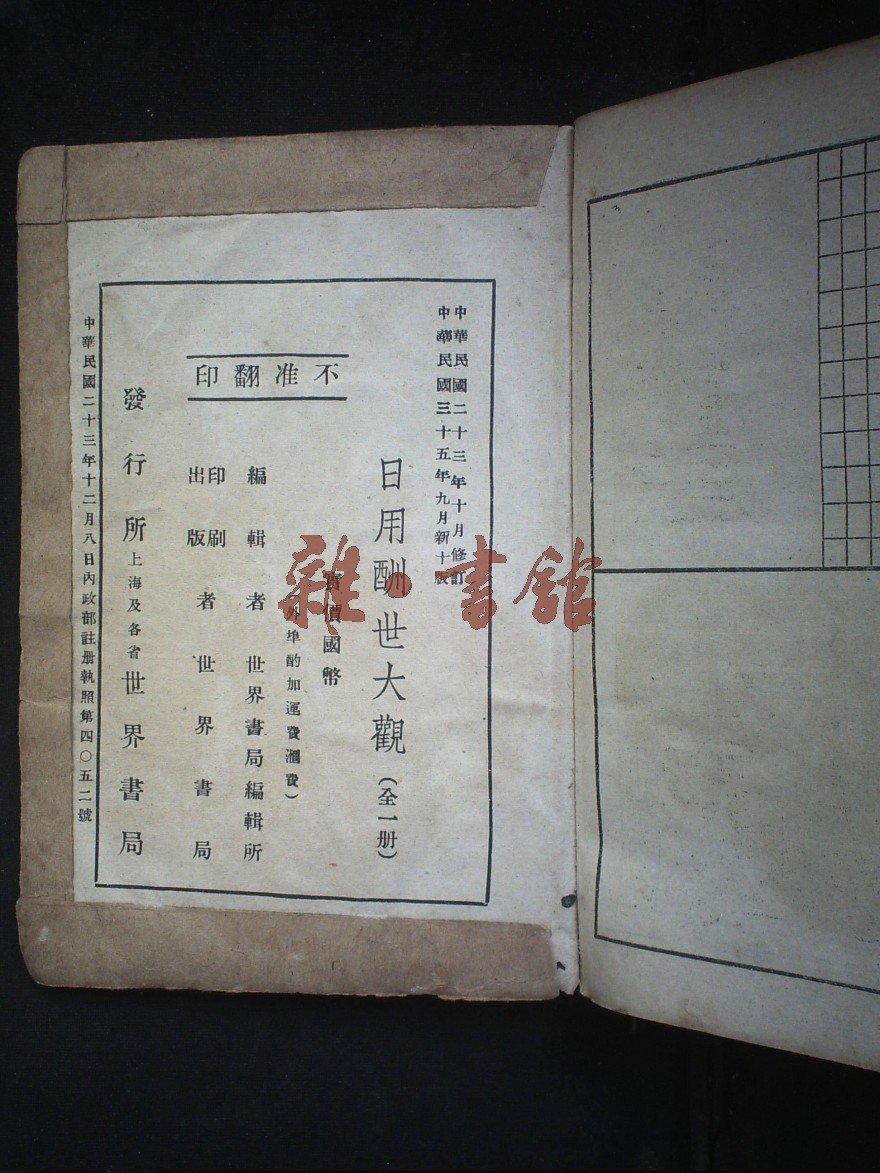 中華民國二十三年十月修訂
中華民國三十五年九月新十版
日用酬世大觀（全一册）
實價國幣
（外埠酌加運費滙費）
不准翻印
編輯者 世界書局編輯所
印刷出版者 世界書局
發行所 上海及各省 世界書局
中華民國二十三年十二月八日內政部註册執照第四〇五二號
雜·書館